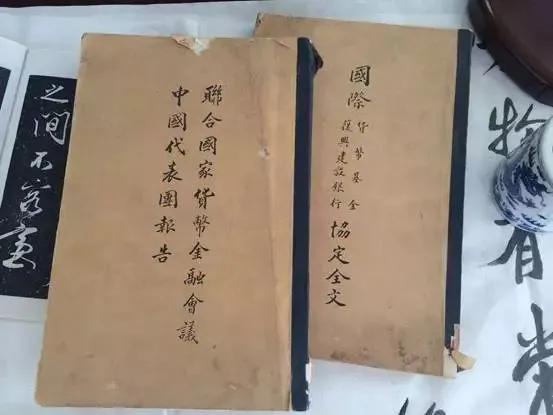 聯合國家貨幣金融會議
中國代表團報告
國際貨幣基金
復興建設銀行
協定全文
之間不容
有